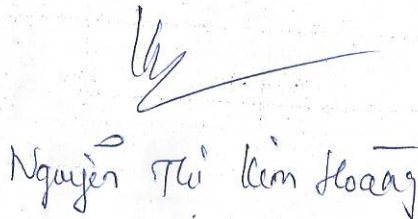 Nguyễn Thị Kim Hoàng